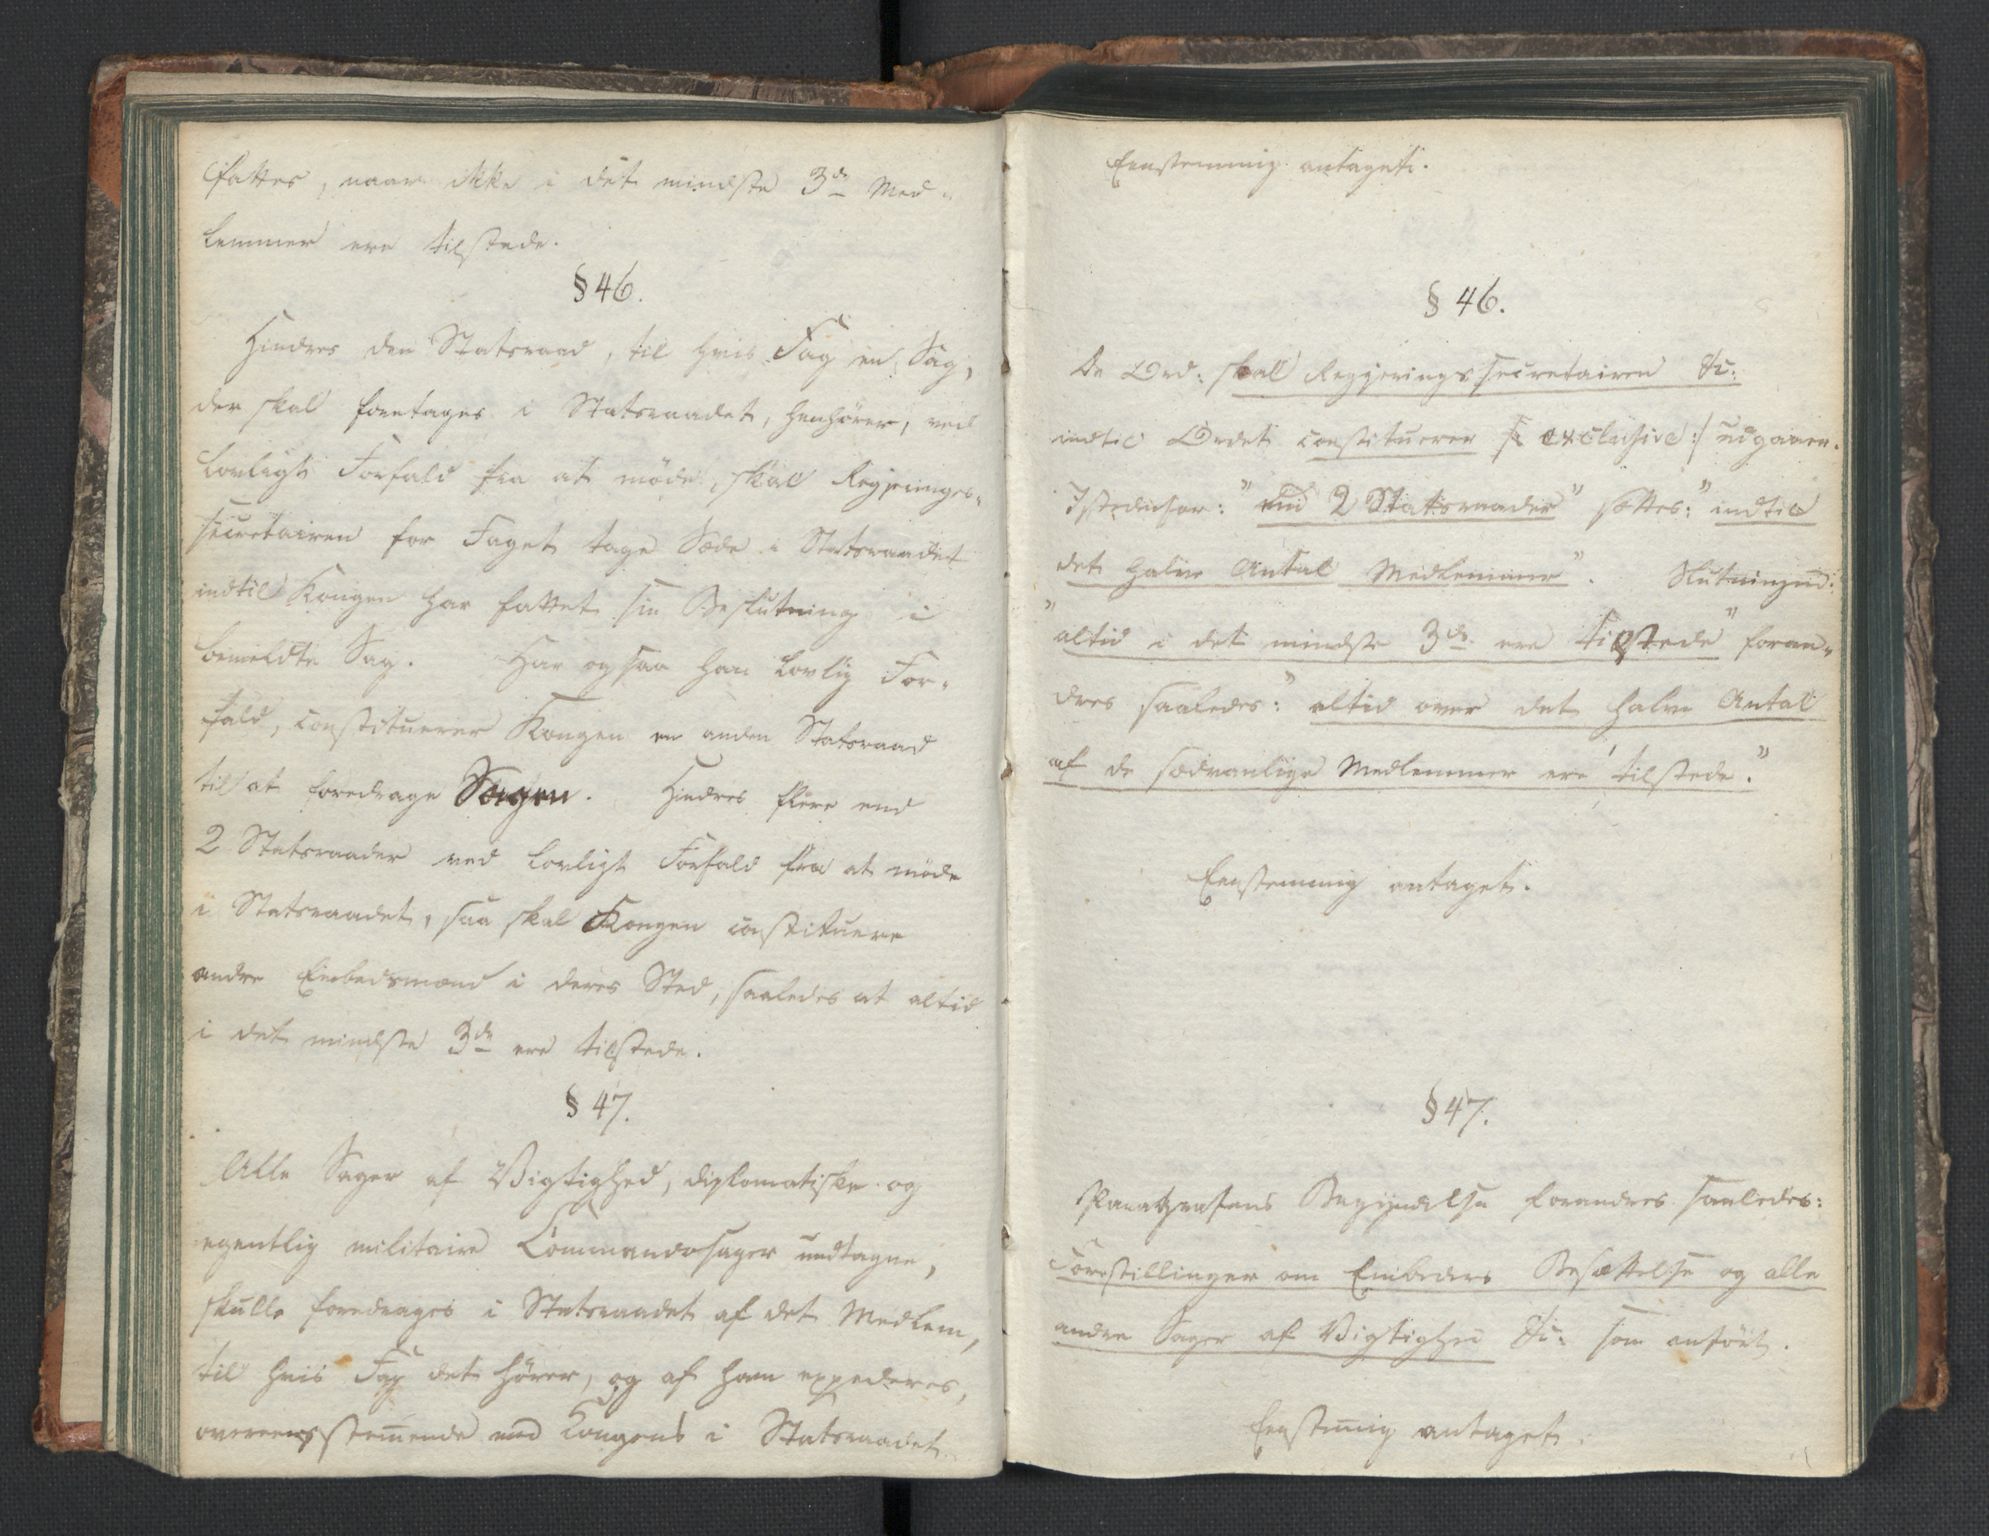 fattes, naar ikke i det mindste 3de Med-
lemmer ere tilstede.
§ 46.
Hindres den Statsraad, til hvis Fag en Sag,
der skal foretages i Statsraadet, henhører, ved
lovligt Forfald fra at møde, skal Regjerings-
secretairen for Faget tage Sæde i Statsraadet
indtil Kongen har fattet sin Beslutning i
bemeldte Sag. Har ogsaa han lovlig For-
fald, constituerer Kongen en anden Statsraad
til at foredrage Sagen. Hindres flere end
2 Statsraader ved lovligt Forfald fra at møde
i Statsraadet, saa skal Kongen constituere
andre Embedsmænd i deres Sted, saaledes at altid
i det mindste 3de ere tilstede.
§ 47.
Alle Sager af Vigtighed, diplomatiske og
egentlig militaire Commandosager undtagne,
skulle foredrages i Statsraadet af det Medlem,
til hvis Fag det hører, og af ham expederes,
overeensstemmende med Kongens i Statsraadet
Eenstemmig antaget.
§ 46.
De Ord: skal Regjeringssecretairen &c:
indtil Ordet constituerer /: exclusive :/ udgaaer.
Istedenfor: "end 2 Statsraader" sættes: "indtil
det halve Antal Medlemmer". Slutningen:
"altid i det mindste 3de ere tilstede" foran-
dres saaledes: "altid over det halve Antal
af de sædvanlige Medlemmer ere tilstede."
Eenstemmig antaget.
§ 47.
Paragrafens Begyndelse forandres saaledes:
Forestillinger om Embeders Besættelse og alle
andre Sager af Vigtighed &c: som anført.
Eenstemig antaget.